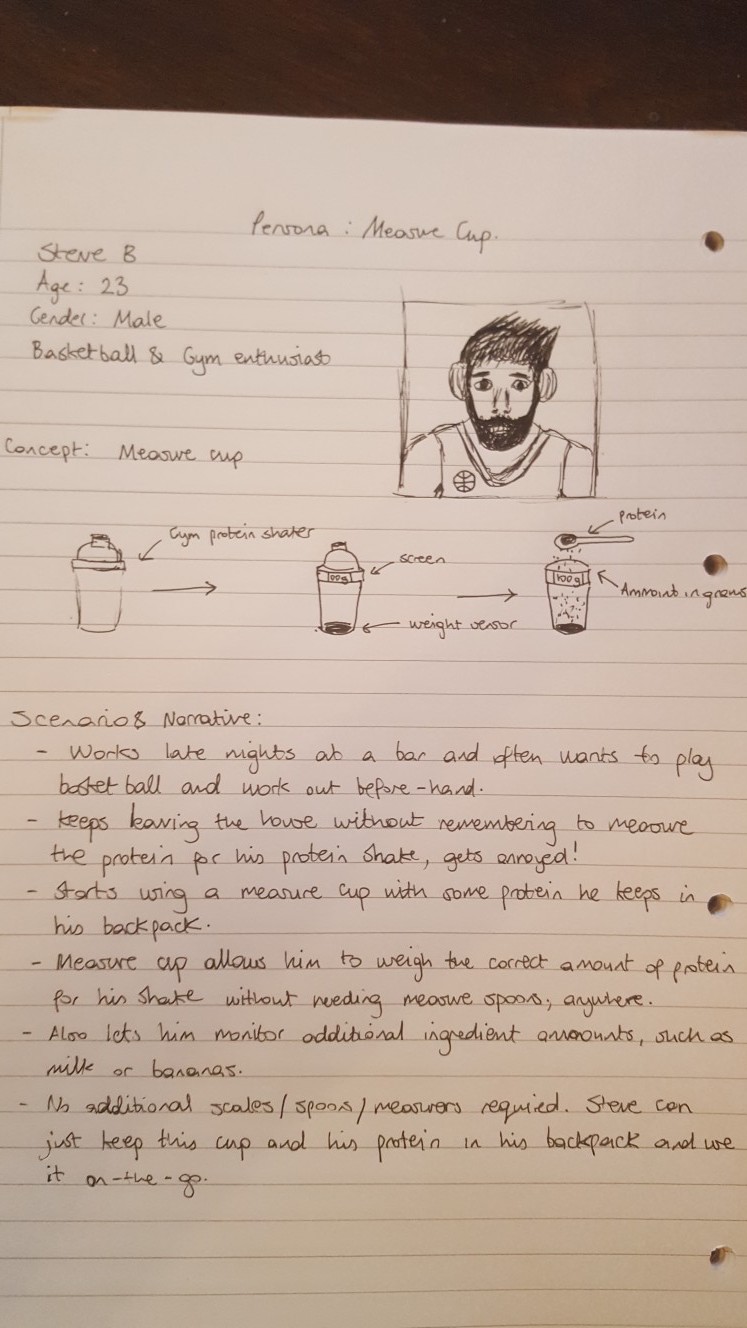 Persona : Measure Cup.
Steve B
Age: 23
Gender: Male
Basketball & Gym enthusiast
Concept: Measure cup
Gym protein shaker
screen
100g
weight sensor
protein
100g
Ammount in grams
Scenario & Narrative:
- Works late nights at a bar and often wants to play
basketball and work out before-hand.
- Keeps leaving the house without remembering to measure
the protein for his protein shake, gets annoyed!
- Starts using a measure cup with some protein he keeps in
his backpack.
- Measure cup allows him to weigh the correct amount of protein
for his shake without needing measure spoons, anywhere.
- Also lets him monitor additional ingredient ammounts, such as
milk or bananas.
- No additional scales/spoons/measurers required. Steve can
just keep this cup and his protein in his backpack and use
it on-the-go.